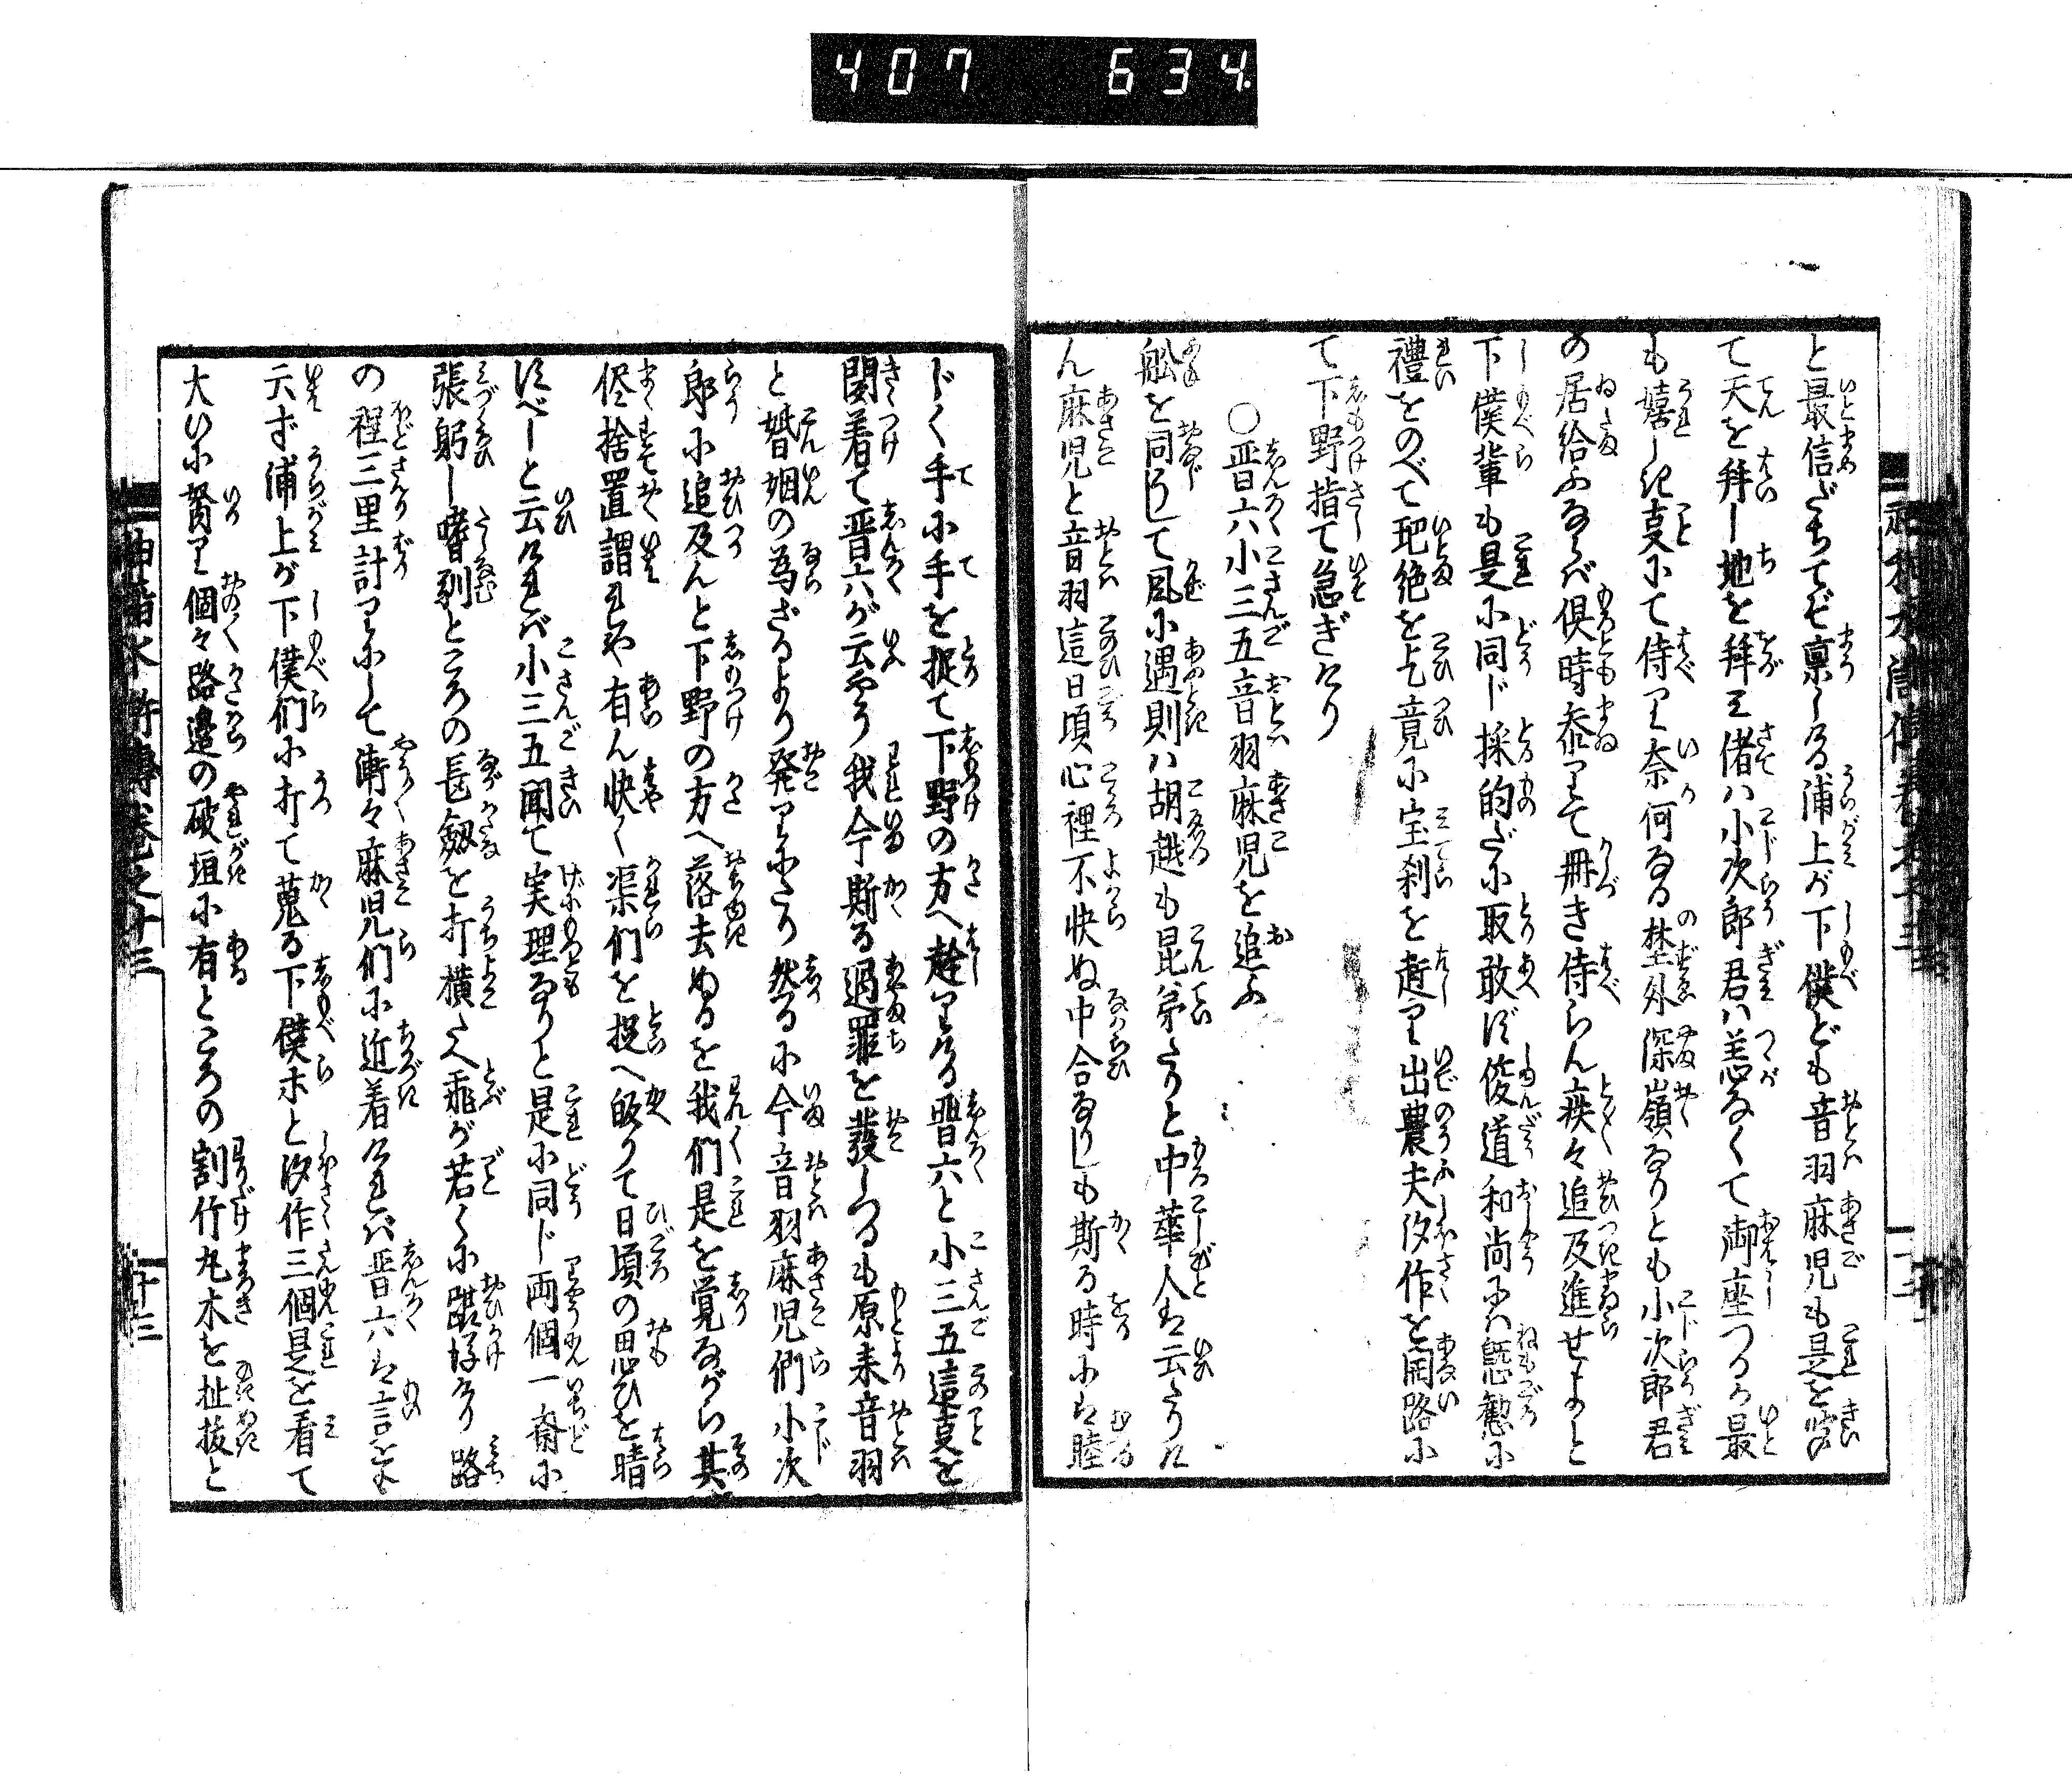 407 634
と最信だちてぞ禀しける浦上が下僕ども音羽麻児も是を
て天を拜し地を拜み偖は小次郎君は恙なくて御座つるか最
も嬉しき支にて侍り奈何なる埜外深嶺なりとも小次郎君
の居給ふならば倶時参りて冊き侍らん疾々追及進せよと
下僕輩も是に同じ採的だに取敢ず俊道和尚には慇懃に
禮をのべて玘絶を乞竟に宝刹を趍り出農夫汐作を開路に
て下野指て急ぎけり
○晋六小三五音羽麻児を追ふ
舩を同じして風に遇則は胡越も昆弟たりと中華人は云たりけ
ん麻児と音羽這日頃心裡不快ぬ中合なりしも斯る時には睦
じく手に手を捉て下野の方へ趍りける晋六と小三五這支を
聞着て晋六が云やう我今斯る過罪を發しつるも原来音羽
と婚姻の為ざるより発りたり然るに今音羽麻児們小次
郎に追及んと下野の方へ落去ぬるを我們是を覚ながら其
侭捨置謂れや有ん快く渠們を捉へ皈りて日頃の思ひを晴
すべしと云ければ小三五聞て実理なりと是に同じ両個一齋に
張躬し嗜剔ところの長劔を打横たへ飛が若くに踪好けり路
の程三里計りにして漸々麻児們に近着ければ晋六は言をも
云ず浦上が下僕們に打て蒐る下僕木と汐作三個是を看て
大いに駑り個々路邉の破垣に有ところの割竹丸木を扯抜と
水滸傳巻之十三
十三